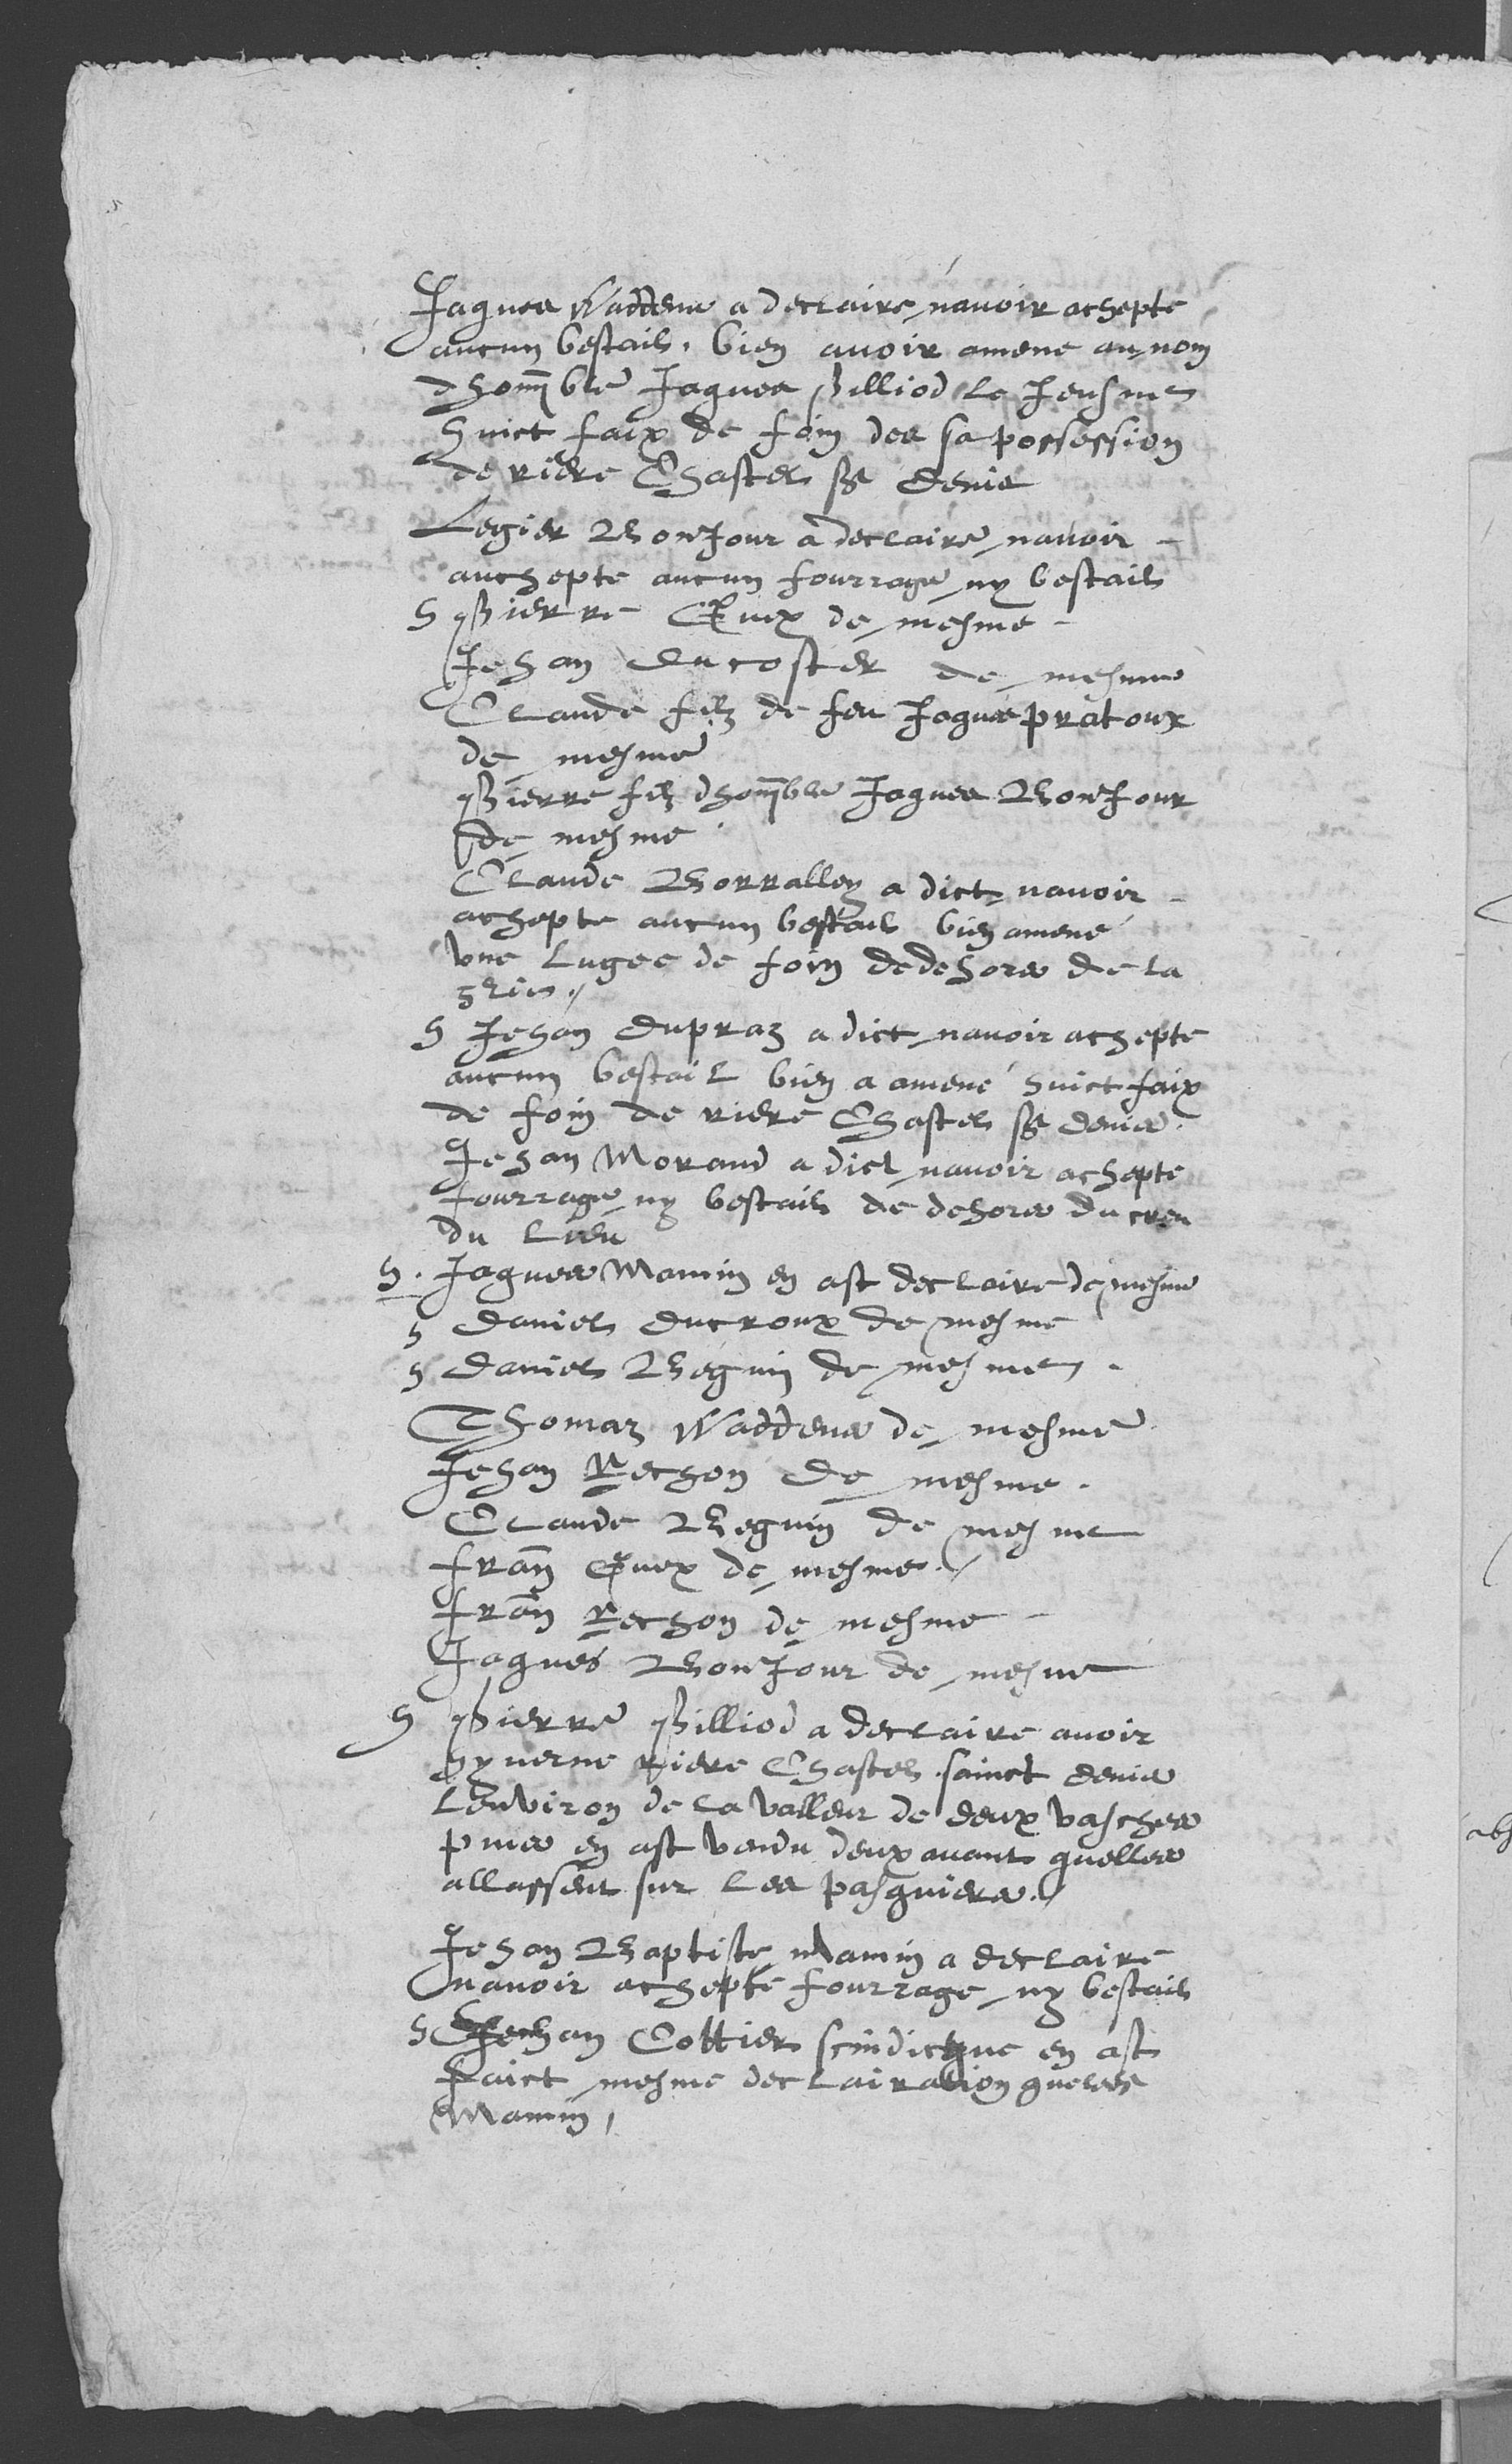 Jaques Waddens a declaire navoir achepte
aucun bestail, bien avoir amene au nom
dhonnble Jaques Pilliod le Jeusne
huict faix de foin des sa possession
de riere Chastel St Denis
Legier Bonjour a declaire navoir
auchepte aucun fourrage ny bestail
h Pierre Quex de mesme
Jehan Ducoster de mesme
Claude filz de feu Jaques Pratoux
de mesme
Pierre filz dhonnble Jaques Bonjour
de mesme
Claude Borralley a dict navoir
achepte aucun bestail bien amene
une lugee de foin dedehors de la

h Jehan Dupraz a dict navoir achepte
aucun bestail bien a amene huict faix
de foin de riere Chastel St Denis.
Jehan Morand a dict navoir achepte
fourrage ny bestail de dehors du creu
du lieu
h. Jaques Mamin en ast declaire de mesme
h Daniel Ducroux de mesme
h Daniel Beguin de mesme.
Thomaz Waddens de mesme
Jehan Rechon de mesme.
Claude Beguin de mesme
Fran Quex de mesme.
Fran Rechon de mesme
Jaques Bonjour de mesme
h Pierre Pilliod a declaire avoir
hyverne riere Chastel sainct Denis
lenviron de la valleur de deux vasches
puis en ast vendu deux avant quelles
allassent sur les pasquiers.
Jehan Baptiste Mamin a declaire
navoir achepte fourrage ny bestail
h Jehan Cottier scindicque en ast
faict mesme declairation que led
Mamin,